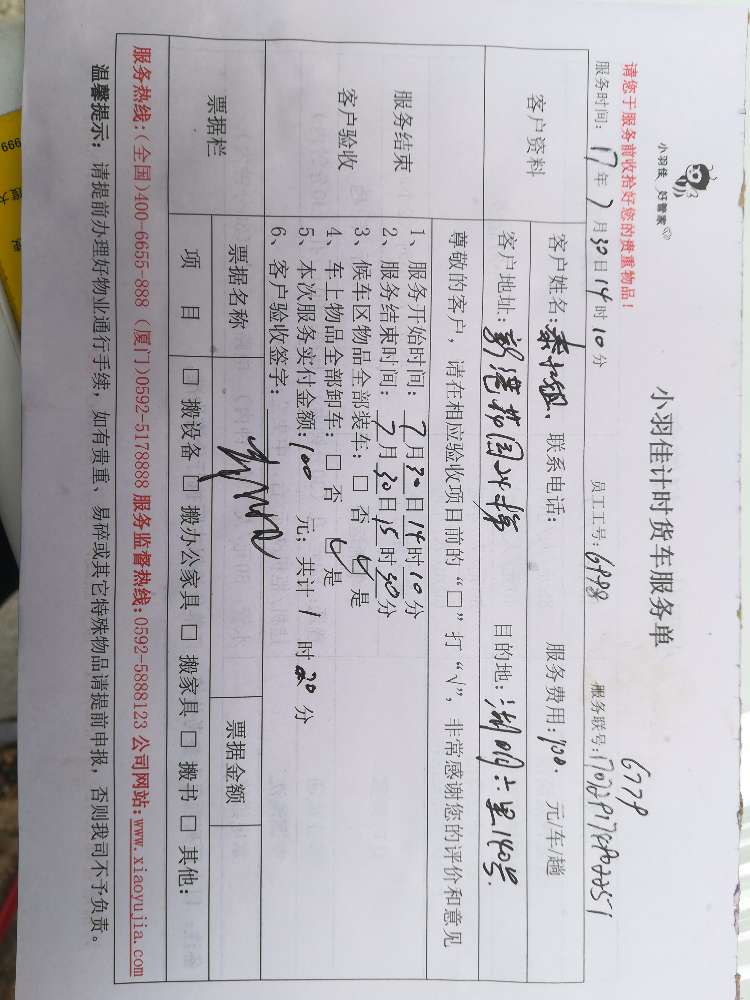 小羽佳 好管家
小羽佳计时货车服务单
请您于服务前收拾好您的贵重物品！
6778
服务时间：17年7月30日14时10分 员工工号：6998 服务联号：
客户资料
客户姓名：秦小姐 联系电话： 服务费用：100. 元/车/趟
客户地址：新港花园24幢 目的地：140号
服务结束
客户验收
尊敬的客户，请在相应验收项目前的“□”打“√”，非常感谢您的评价和意见
1、服务开始时间：7月30日14时10分
2、服务结束时间：7月30日15时30分
3、候车区物品全部装车：□否 ☑是
4、车上物品全部卸车：□否 ☑是
5、本次服务实付金额：100 元；共计1时20分
6、客户验收签字：
票据栏
票据名称 票据金额
项目 □搬设备 □搬办公家具 □搬家具 □搬书 □其他：
服务热线：(全国)400-6655-888 (厦门)0592-5178888 服务监督热线：0592-5888123 公司网站：www.xiaoyujia.com
温馨提示：请提前办理好物业通行手续，如有贵重、易碎或其它特殊物品请提前申报，否则我司不予负责。